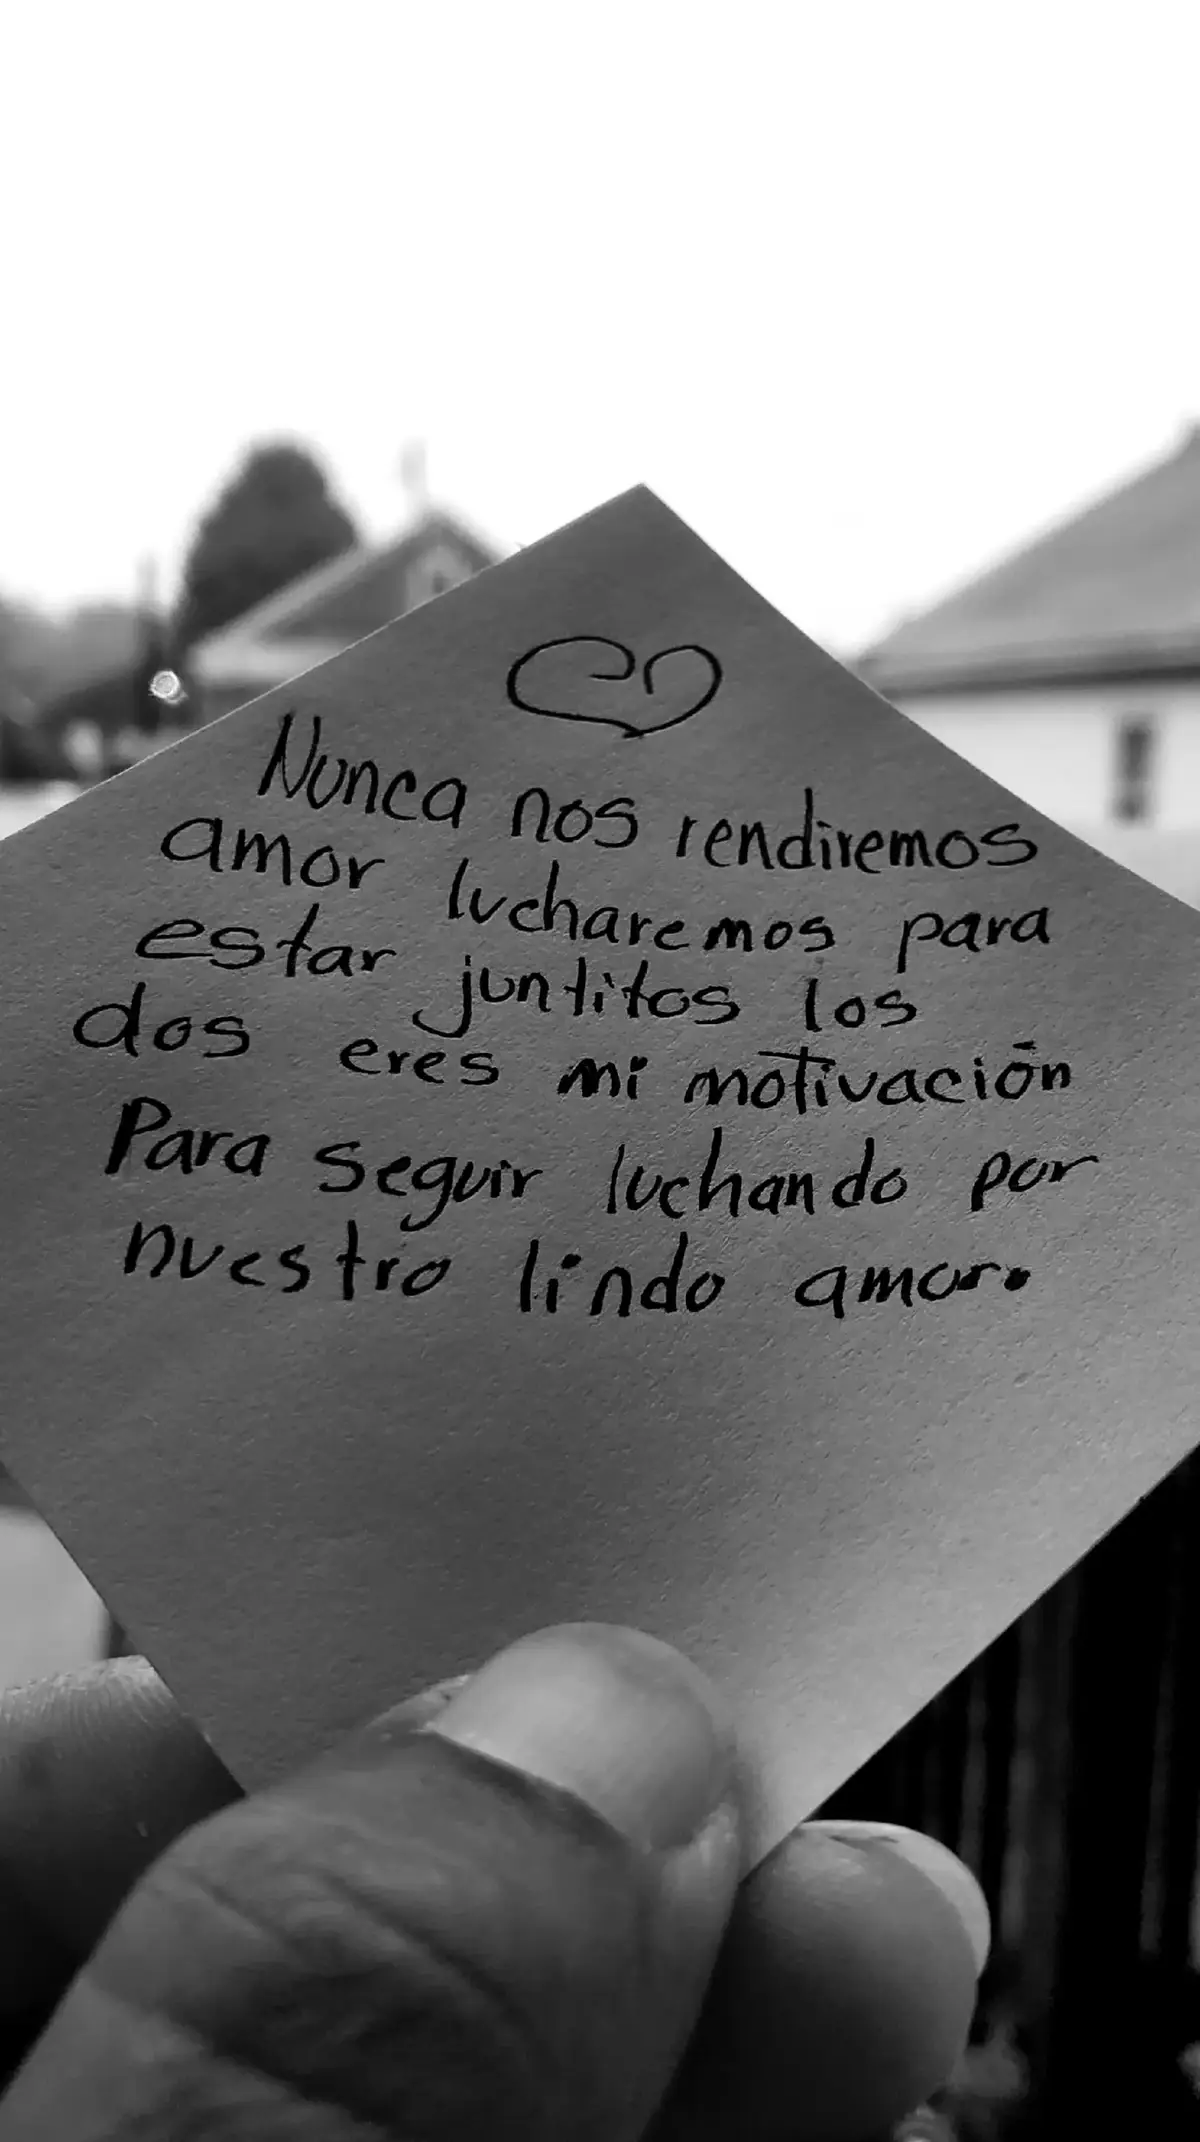 Nunca nos rendiremos
amor lucharemos para
estar juntitos los
dos eres mi motivación
Para seguir luchando por
nuestro lindo amor.